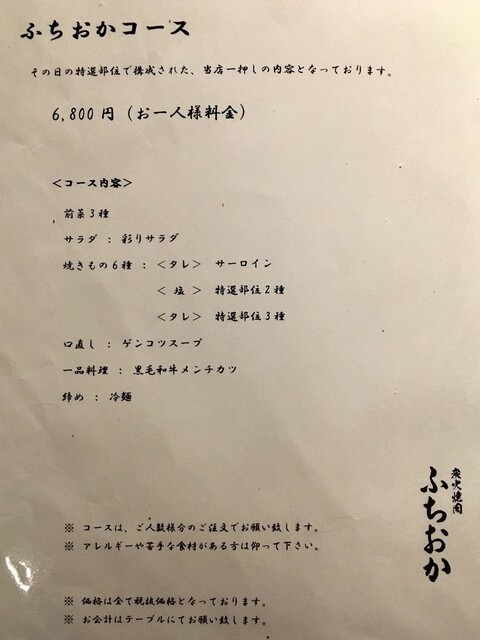 ふちおかコース
その日の特選部位で構成された、当店一押しの内容となっております。
6,800円（お一人様料金）
＜コース内容＞
前菜3種
サラダ ： 彩りサラダ
焼きもの6種 ： ＜タレ＞ サーロイン
＜ 塩 ＞ 特選部位2種
＜タレ＞ 特選部位3種
口直し ： ゲンコツスープ
一品料理 ： 黒毛和牛メンチカツ
締め ： 冷麺
炭火焼肉
ふちおか
※ コースは、ご人数様分のご注文でお願い致します。
※ アレルギーや苦手な食材がある方は仰って下さい。
※ 価格は全て税抜価格となっております。
※ お会計はテーブルにてお願い致します。